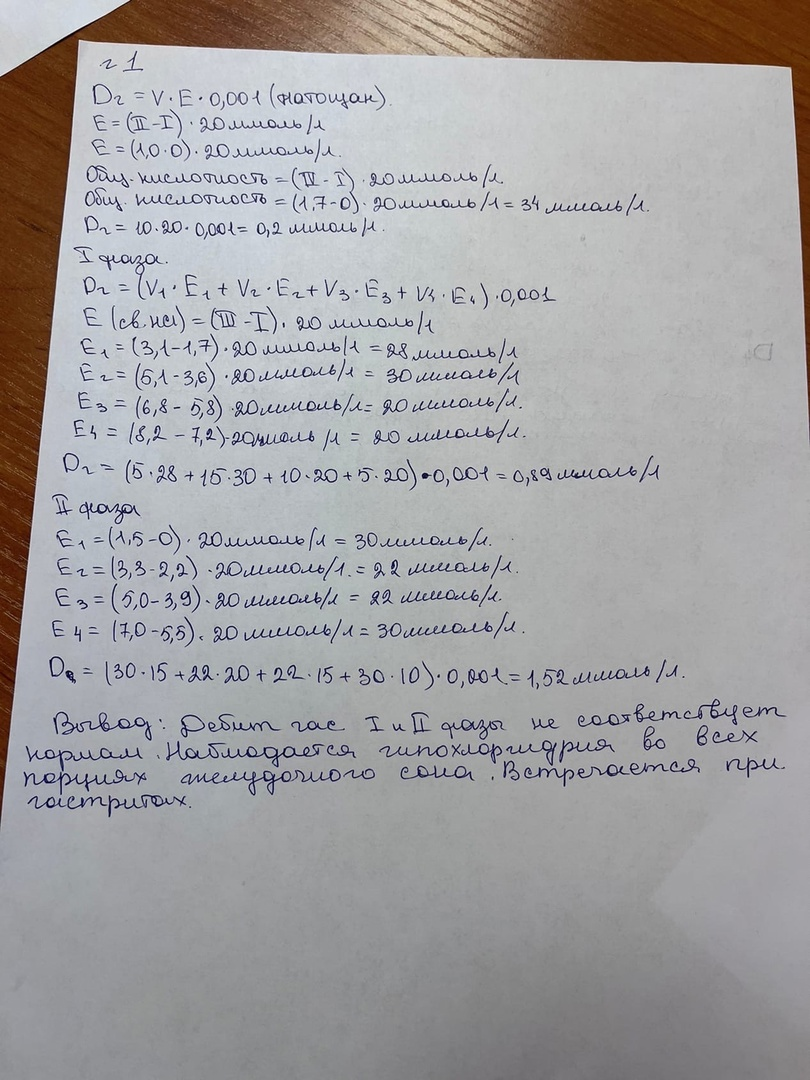 г 1
Dг = V · E · 0,001 (натощак).
E = (II - I) · 20 ммоль/л
E = (1,0 · 0) · 20 ммоль/л.
Общ. кислотность = (III - I) · 20 ммоль/л.
Общ. кислотность = (1,7 - 0) · 20 ммоль/л = 34 ммоль/л.
Dг = 10 · 20 · 0,001 = 0,2 ммоль/л.
I фаза.
Dг = (V1 · E1 + V2 · E2 + V3 · E3 + V4 · E4) · 0,001
E (св. HCl) = (III - I) · 20 ммоль/л
E1 = (3,1 - 1,7) · 20 ммоль/л = 28 ммоль/л
E2 = (5,1 - 3,6) · 20 ммоль/л = 30 ммоль/л
E3 = (6,8 - 5,8) · 20 ммоль/л = 20 ммоль/л.
E4 = (8,2 - 7,2) · 20 ммоль/л = 20 ммоль/л.
Dг = (5 · 28 + 15 · 30 + 10 · 20 + 5 · 20) · 0,001 = 0,89 ммоль/л
II фаза
E1 = (1,5 - 0) · 20 ммоль/л = 30 ммоль/л.
E2 = (3,3 - 2,2) · 20 ммоль/л. = 22 ммоль/л.
E3 = (5,0 - 3,9) · 20 ммоль/л = 22 ммоль/л.
E4 = (7,0 - 5,5) · 20 ммоль/л = 30 ммоль/л.
D = (30 · 15 + 22 · 20 + 22 · 15 + 30 · 10) · 0,001 = 1,52 ммоль/л.
Вывод: Дебит час I и II фазы не соответствует
нормам. Наблюдается гипохлоргидрия во всех
порциях желудочного сока. Встречается при
гастритах.